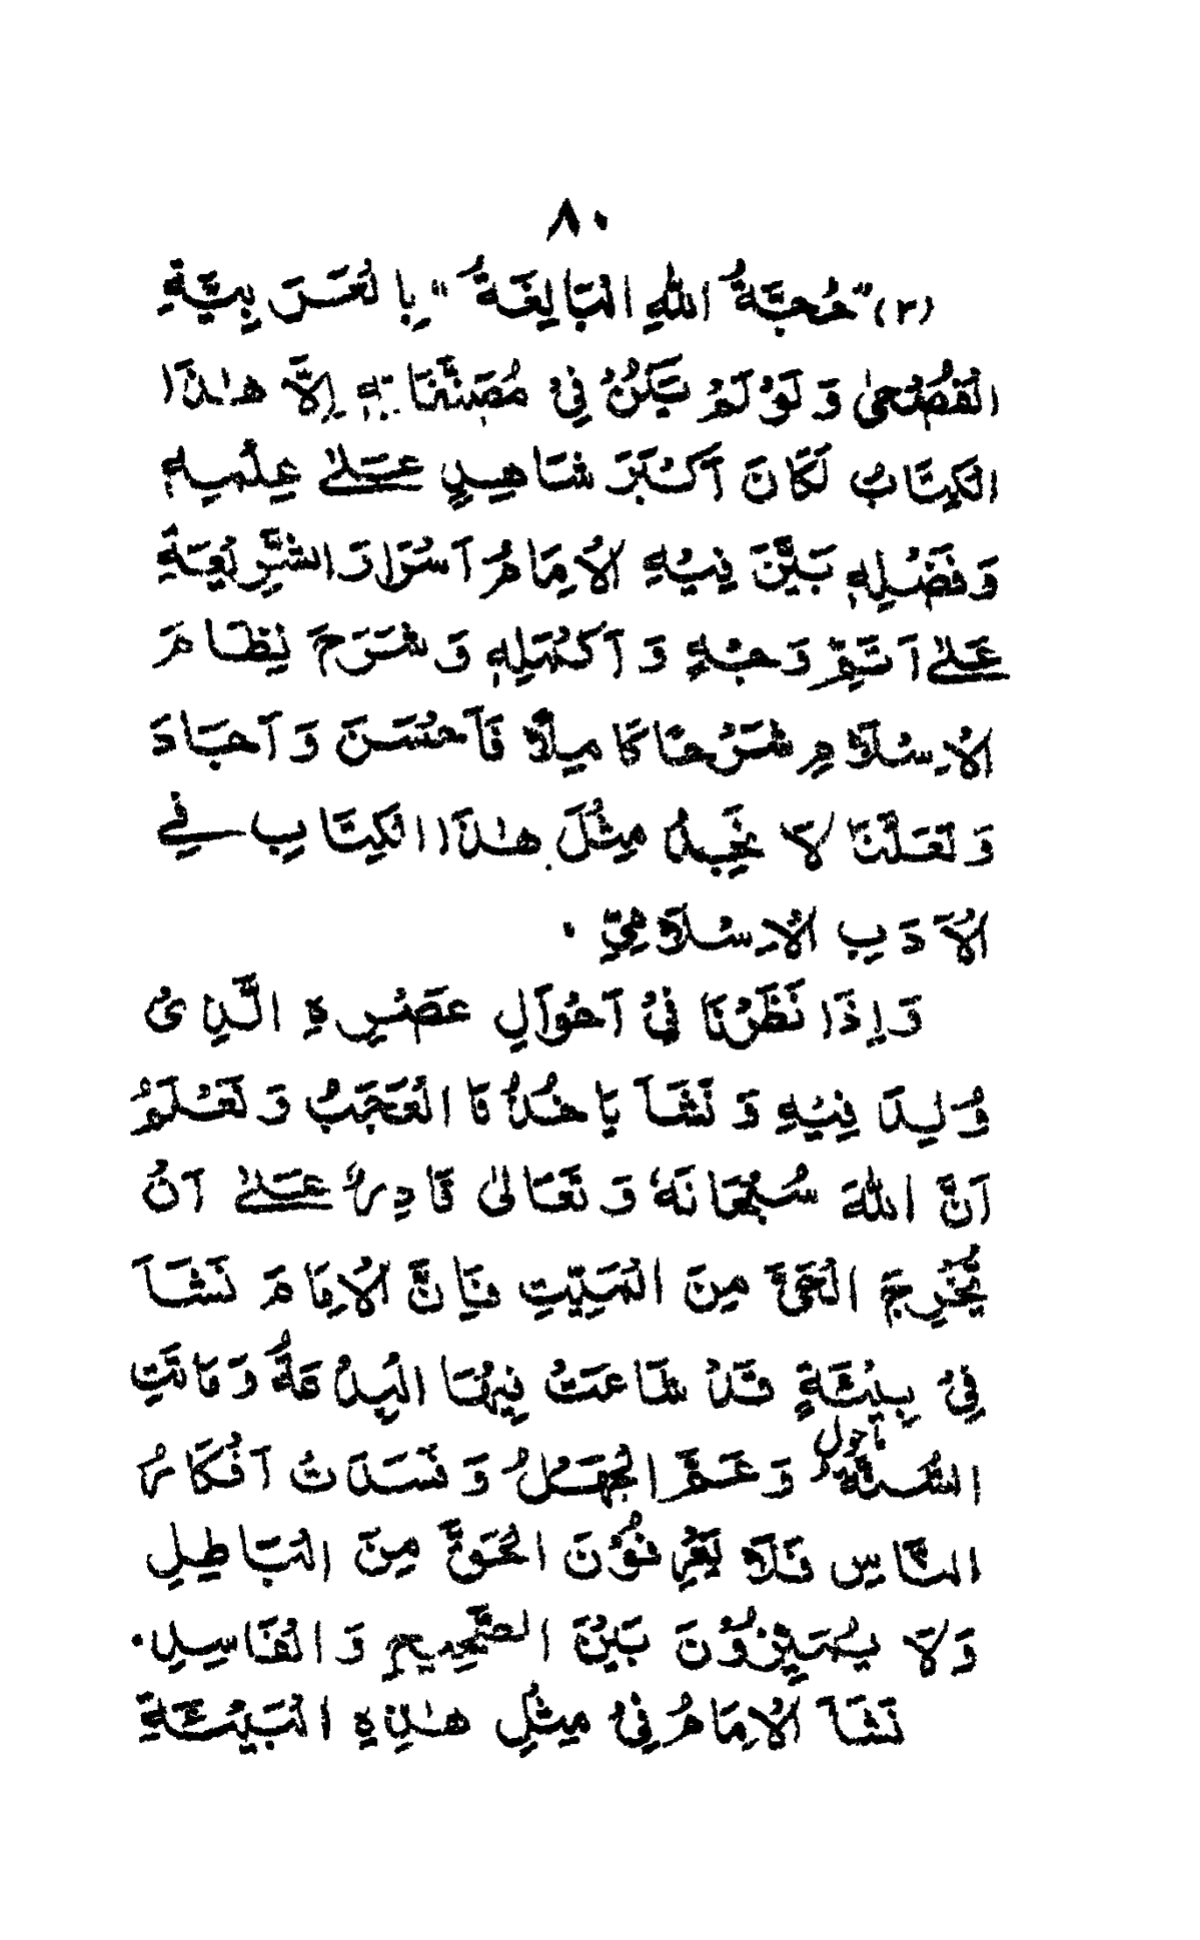 ٨٠
(٣) "حُجَّةُ اللهِ الْبَالِغَةُ" بِالْعَرَبِيَّةِ
الْفُصْحٰى وَ لَوْ لَمْ يَكُنْ فِىْ مُصَنَّفَاتِهٖ اِلَّا هٰذَا
الْكِتَابُ لَكَانَ اَكْبَرَ شَاهِدٍ عَلٰى عِلْمِهٖ
وَفَضْلِهٖ بَيَّنَ فِيْهِ الْاِمَامُ اَسْرَارَ الشَّرِيْعَةِ
عَلٰى اَتَمِّ وَجْهٍ وَ اَكْمَلِهٖ وَ شَرَحَ نِظَامَ
الْاِسْلَامِ شَرْحًا كَامِلًا فَاَحْسَنَ وَ اَجَادَ
وَ لَعَلَّنَا لَا نَجِدُ مِثْلَ هٰذَا الْكِتَابِ فِي
الْاَدَبِ الْاِسْلَامِيِّ ۰
وَ اِذَا نَظَرْنَا فِىْ اَحْوَالِ عَصْرِهِ الَّذِىْ
وُلِدَ فِيْهِ وَ نَشَأَ يَاْخُذُنَا الْعَجَبُ وَ نَعْلَمُ
اَنَّ اللهَ سُبْحَانَهٗ وَ تَعَالٰى قَادِرٌ عَلٰى اَنْ
يُّخْرِجَ الْحَىَّ مِنَ الْمَيِّتِ فَاِنَّ الْاِمَامَ نَشَأَ
فِىْ بِيْئَةٍ قَدْ شَاعَتْ فِيْهَا الْبِدْعَةُ وَ مَاتَتِ
مآحول
السُّنَّةُ وَ عَمَّ الْجَهْلُ وَ فَسَدَتْ اَفْكَارُ
النَّاسِ فَلَا يَعْرِفُوْنَ الْحَقَّ مِنَ الْبَاطِلِ
وَ لَا يُمَيِّزُوْنَ بَيْنَ الصَّحِيْحِ وَ الْفَاسِدِ ۰
نَشَأَ الْاِمَامُ فِىْ مِثْلِ هٰذِهِ الْبِيْئَةِ